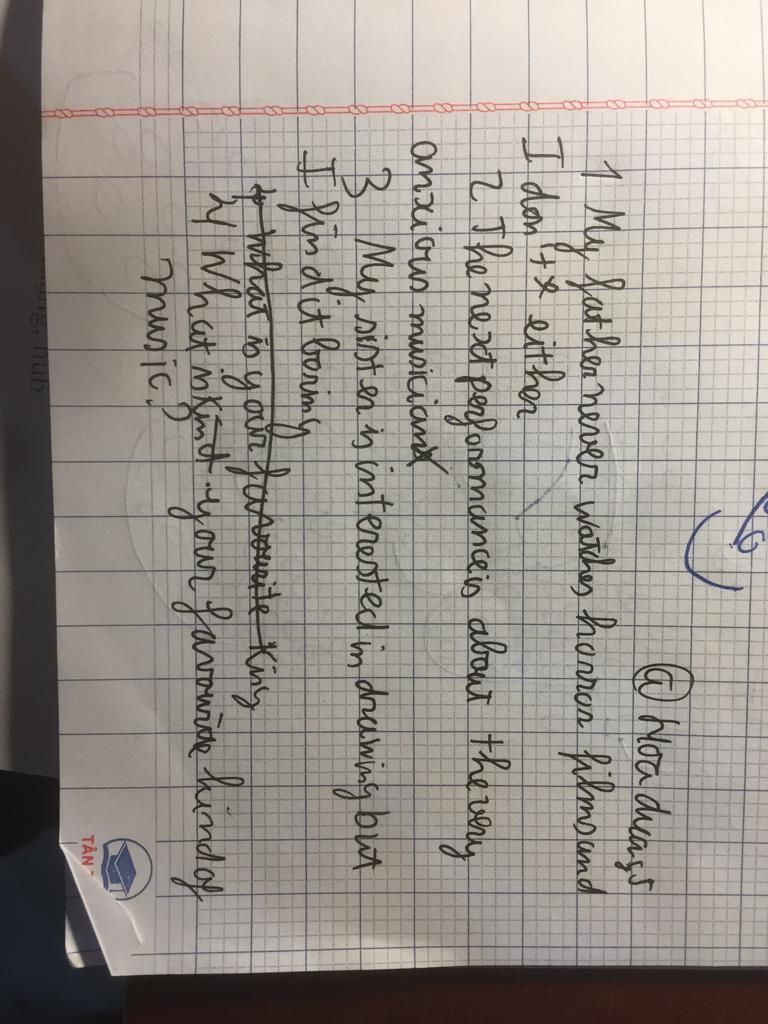 1 My father never watches horror films and
I don't either
2 The next performance is about the very
anxious musician
3 My sister is interested in drawing but
I find it boring
4 What is your favourite king
4 What is your favourite kind of
music?
TÂN